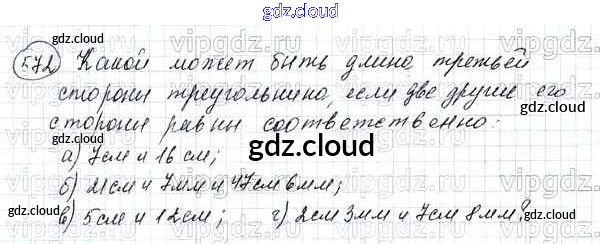 gdz.cloud
572 Какой может быть длина третьей
стороны треугольника, если две другие его
стороны равны соответственно:
gdz.cloud
а) 7см и 16 см;
б) 21см и 7мм и 47см 6мм;
в) 5см и 12см; г) 2см 3мм и 7см 8мм?